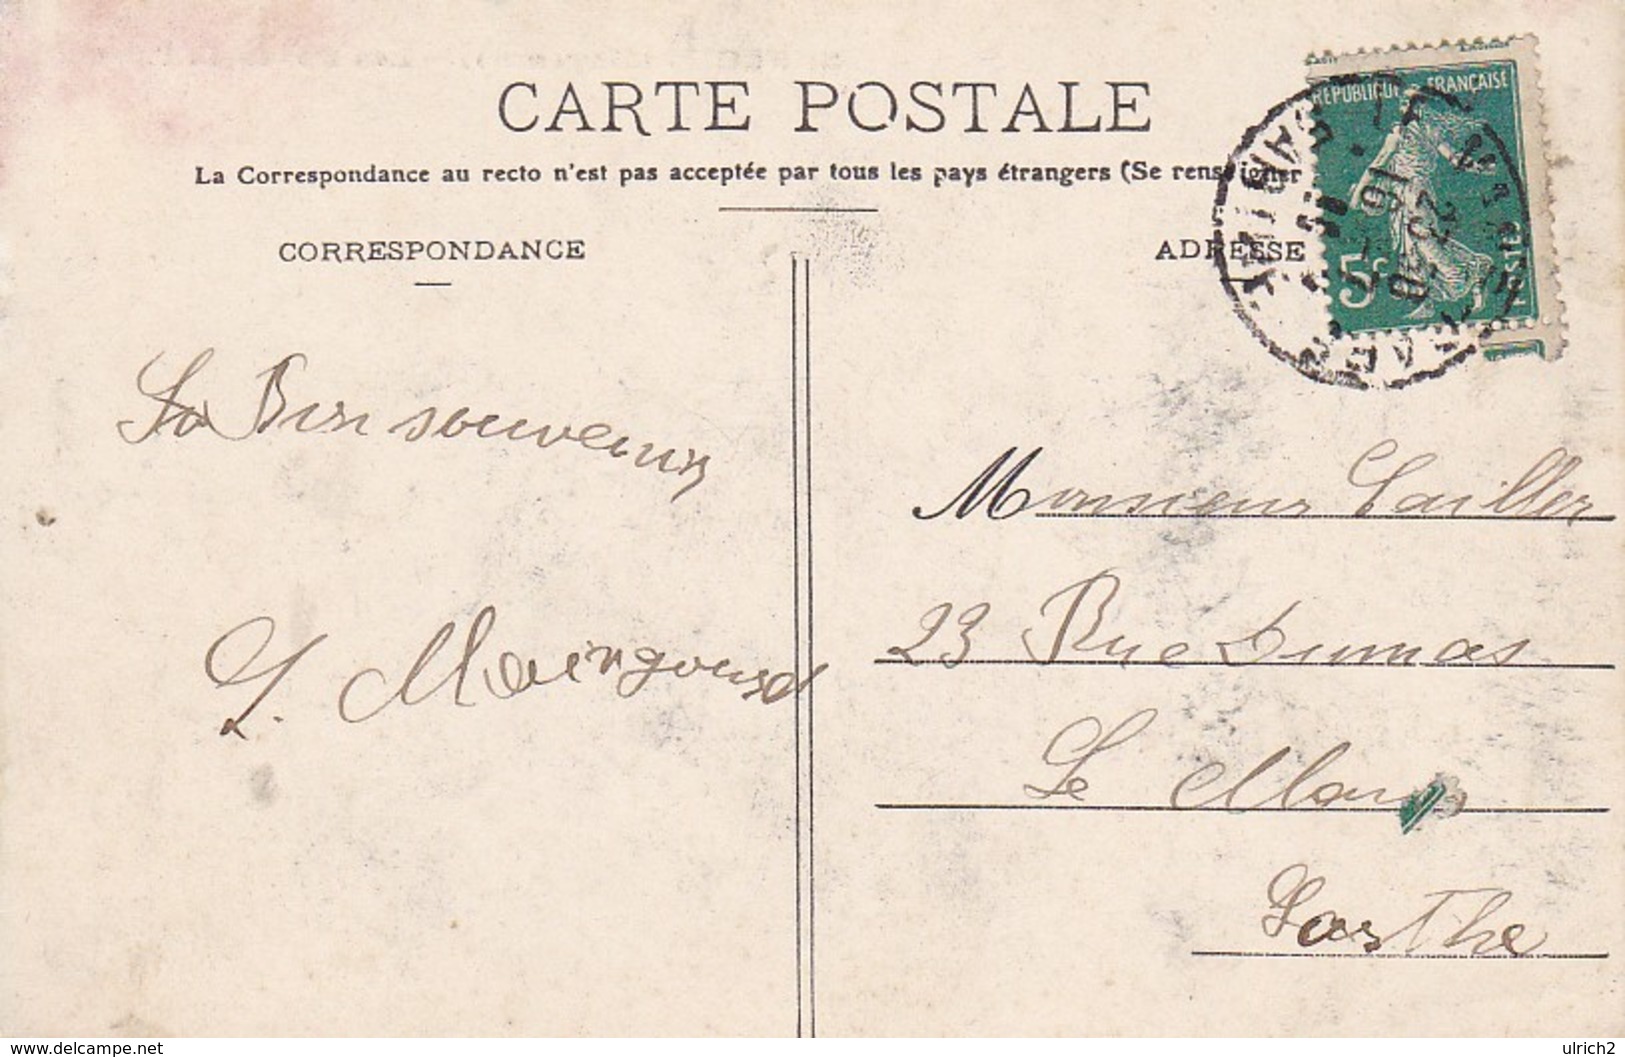 CARTE POSTALE
La Correspondance au recto n'est pas acceptée par tous les pays étrangers (Se renseigner
CORRESPONDANCE
ADRESSE
RÉPUBLIQUE FRANÇAISE
5c
POSTES
Bon souvenir
Monsieur Tailler
23 Rue Dumas
Le Mans
Sarthe
www.delcampe.net
ulrich2